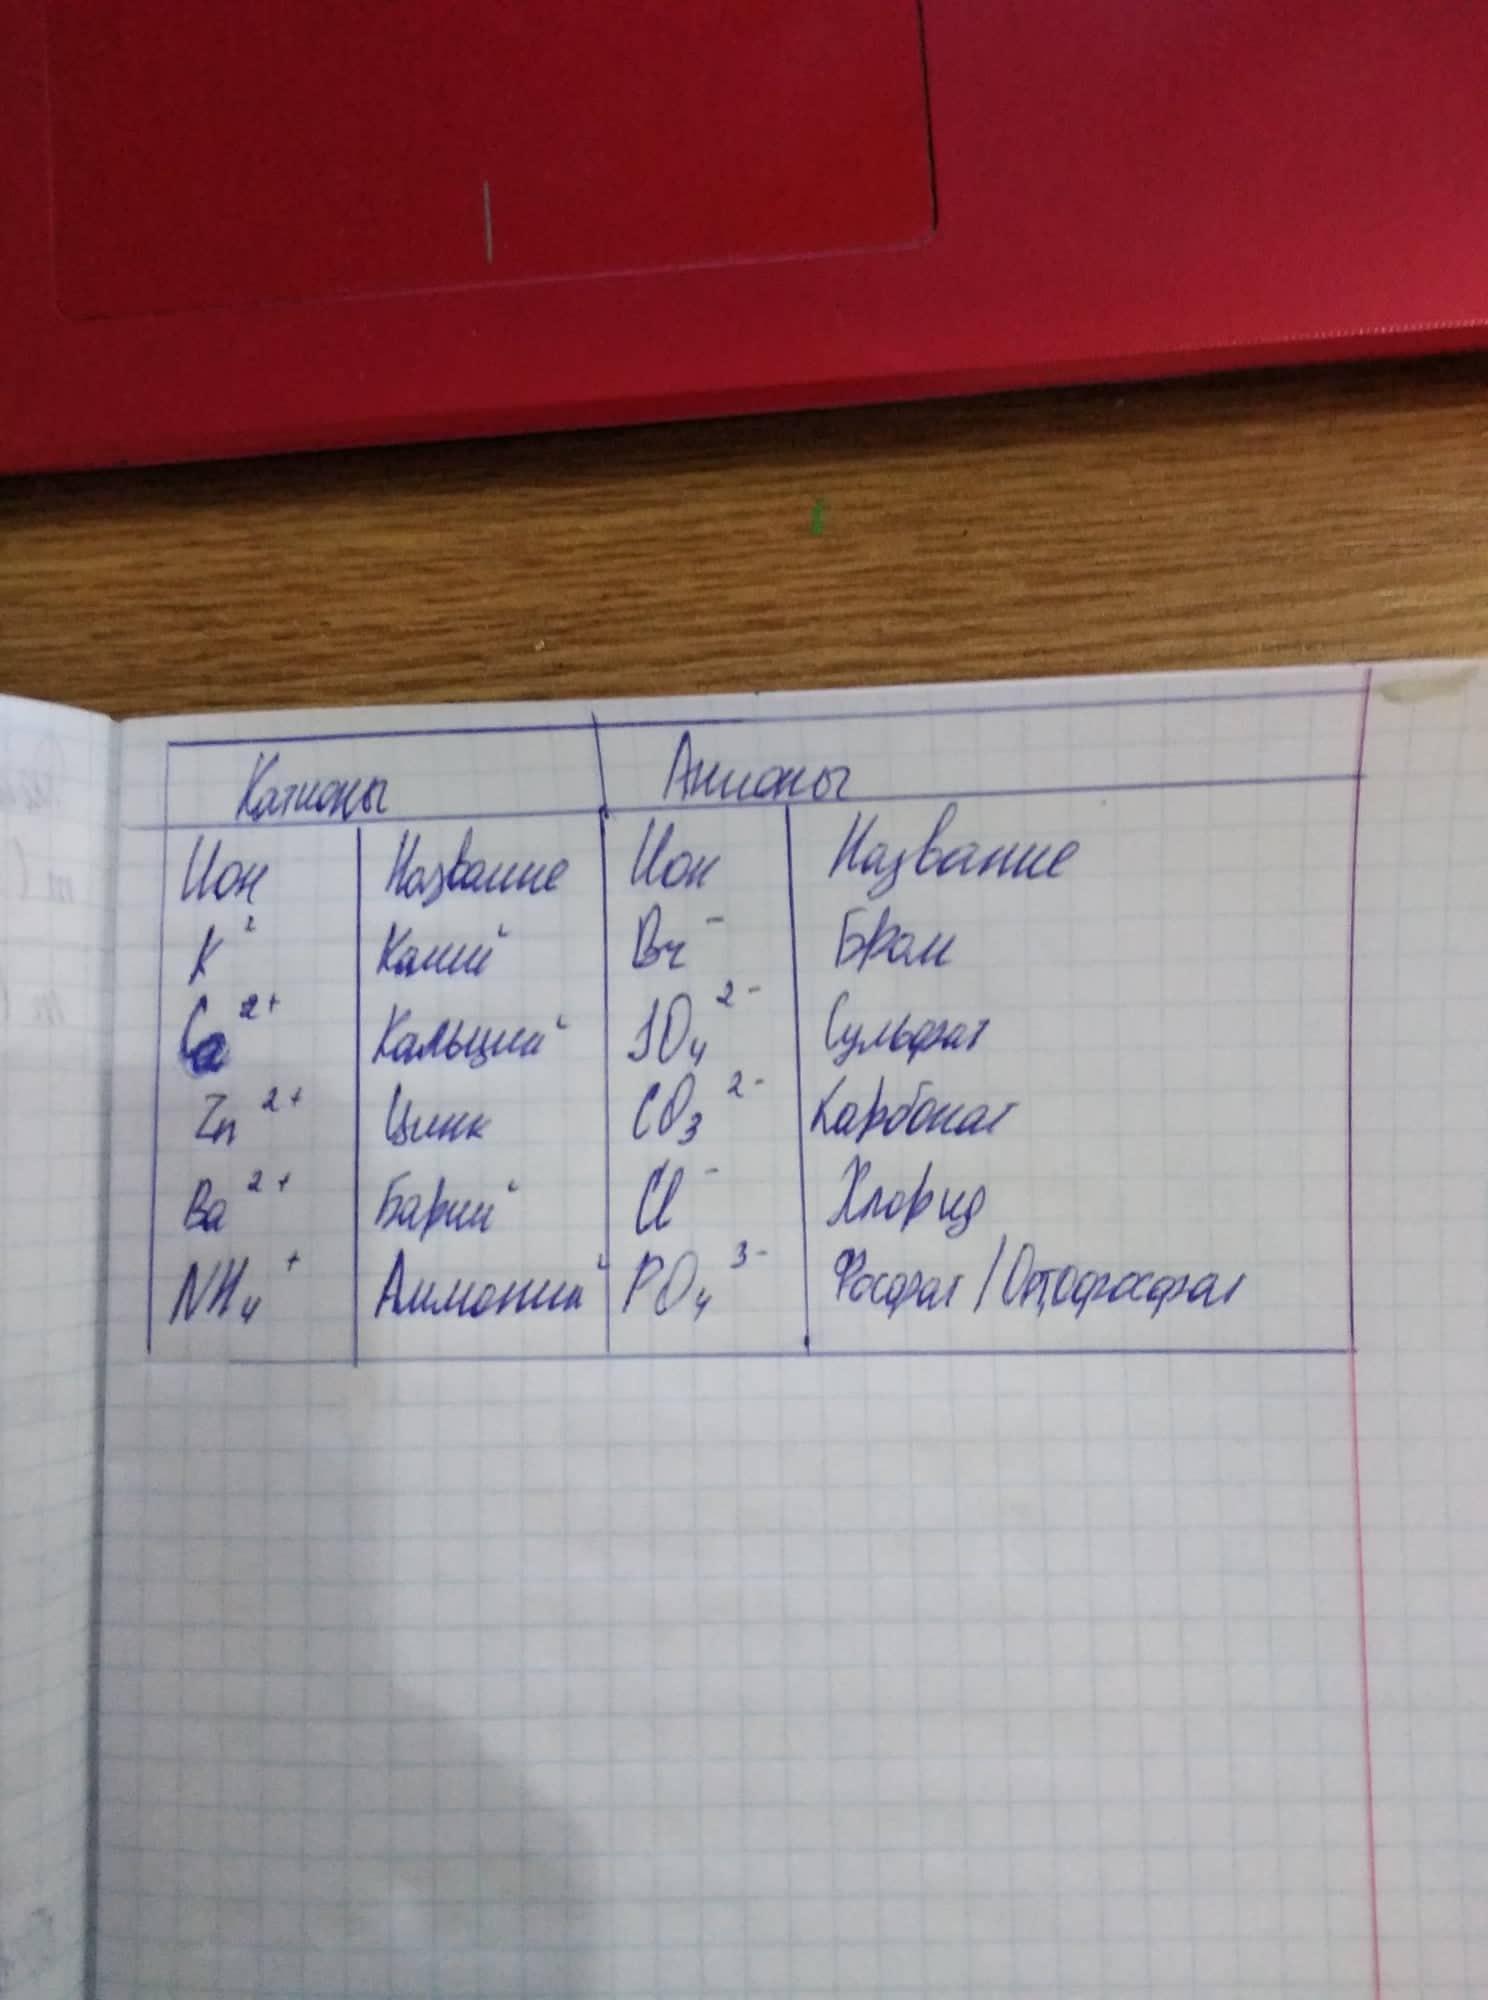 Катионы Анионы
Ион Название Ион Название
K² Калий Br⁻ Бром
Ca²⁺ Кальций SO₄²⁻ Сульфат
Zn²⁺ Цинк CO₃²⁻ Карбонат
Ba²⁺ Барий Cl⁻ Хлорид
NH₄⁺ Аммоний PO₄³⁻ Фосфат/Ортофосфат